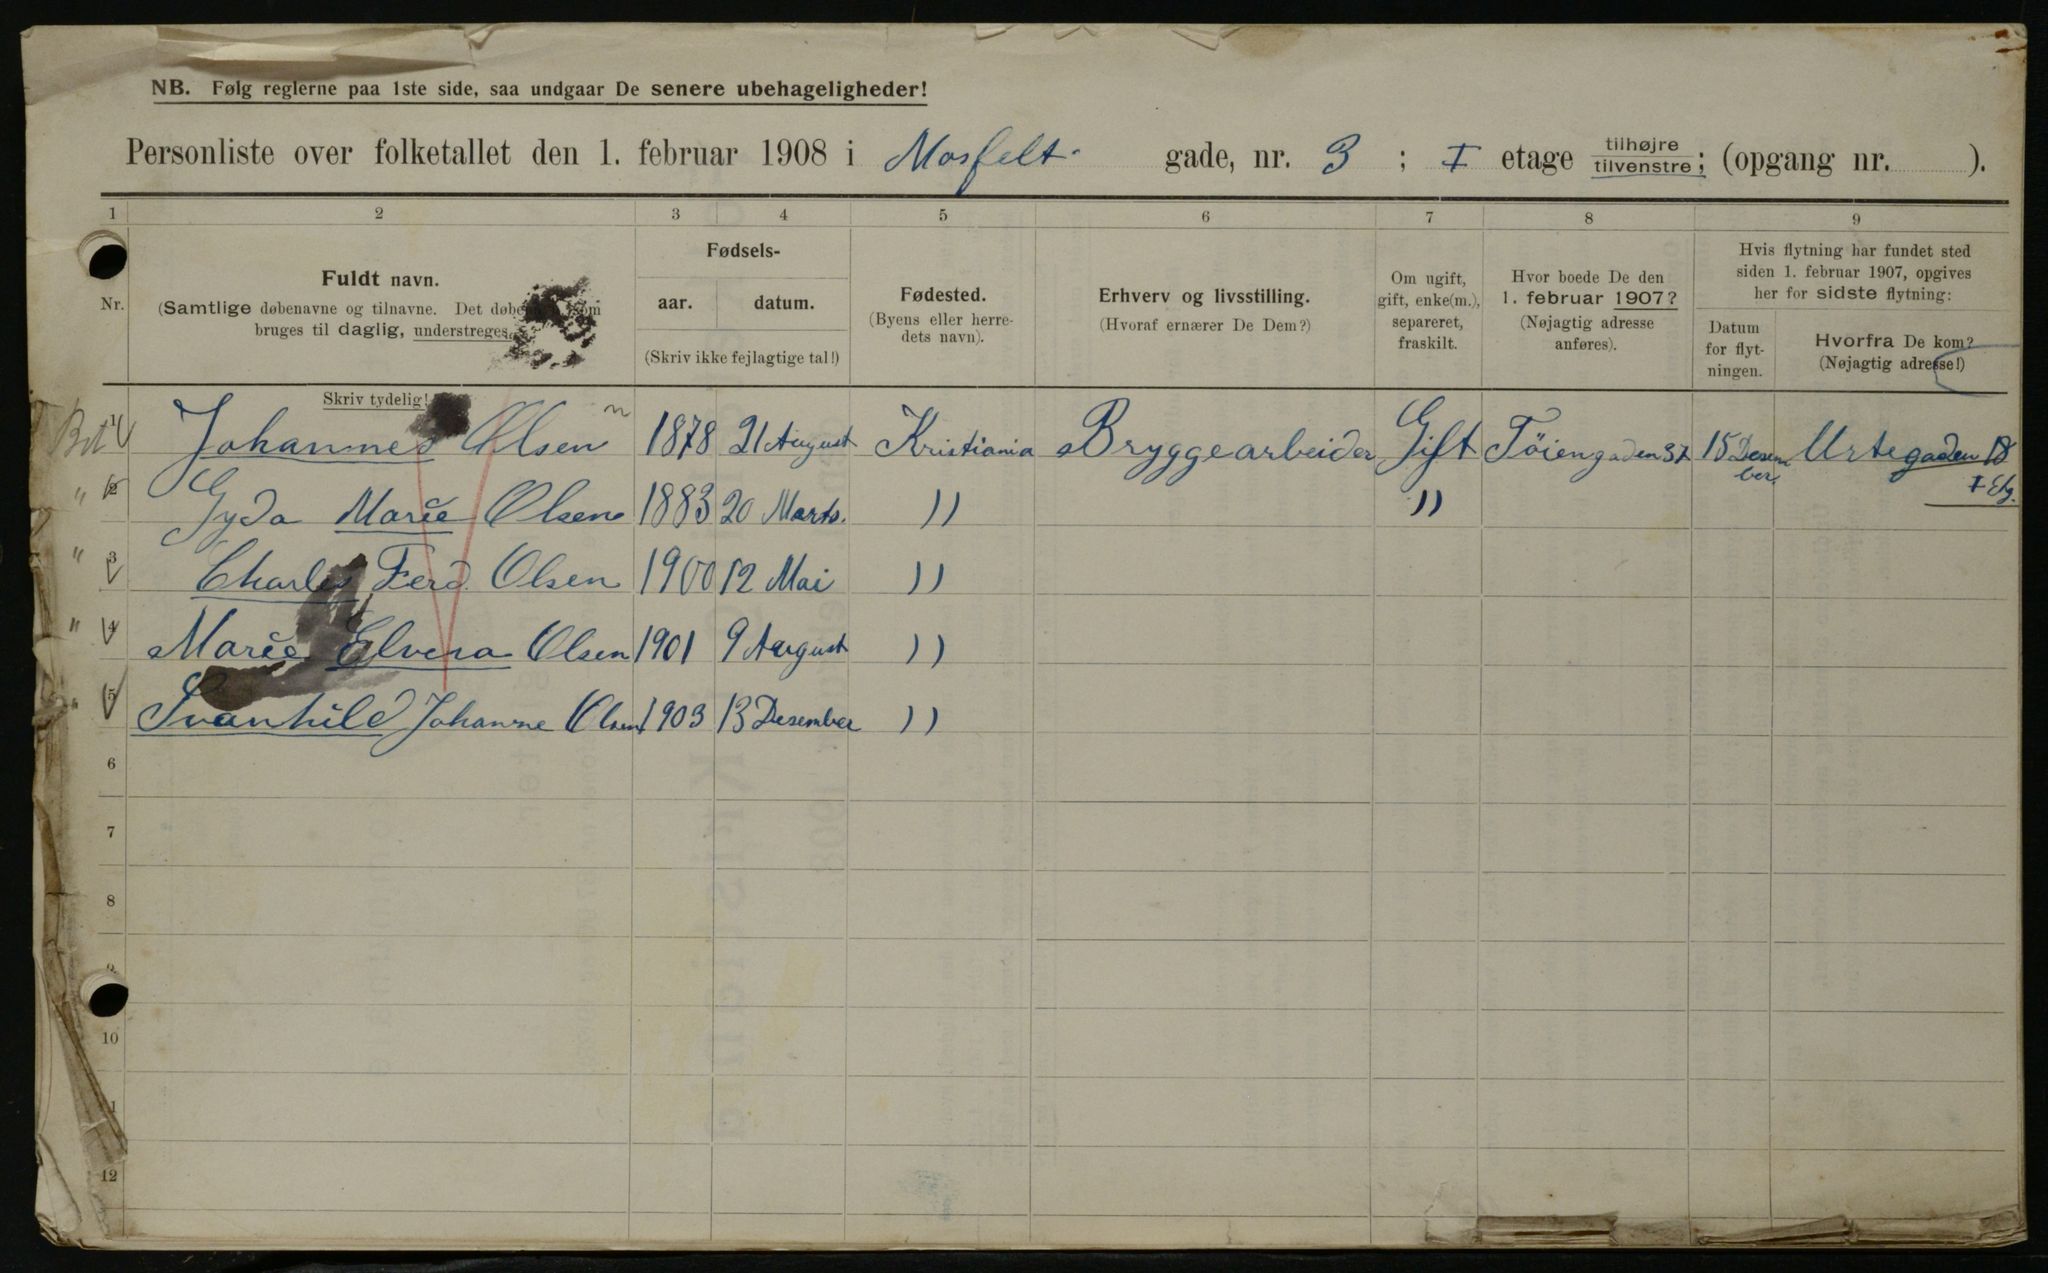 NB. Følg reglerne paa 1ste side, saa undgaar De senere ubehageligheder!
Personliste over folketallet den 1. februar 1908 i Mosfelt- gade, nr. 3 ; I etage tilhøjre / tilvenstre; (opgang nr. ).
1 2 3 4 5 6 7 8 9
Nr.
Fuldt navn.
(Samtlige døbenavne og tilnavne. Det som
bruges til daglig, understreges.
Skriv tydelig!
Fødsels-
aar. datum.
(Skriv ikke fejlagtige tal!)
Fødested.
(Byens eller herre-
dets navn).
Erhverv og livsstilling.
(Hvoraf ernærer De Dem?)
Om ugift,
gift, enke(m.),
separeret,
fraskilt.
Hvor boede De den
1. februar 1907?
(Nøjagtig adresse
anføres).
Hvis flytning har fundet sted
siden 1. februar 1907, opgives
her for sidste flytning:
Datum
for flyt-
ningen.
Hvorfra De kom?
(Nøjagtig adresse!)
1 Johannes Olsen 1878 21 August Kristiania Bryggearbeider Gift Töiengaden 37 15 Desem
ber Urtegaden 18
I Etg.
" 2 Gyda Marie Olsen 1883 20 Marts. )) ))
" 3 Charles Ferd. Olsen 1900 12 Mai ))
" 4 Marie Elvera Olsen 1901 9 August ))
" 5 Svanhild Johanne Olsen 1903 13 Desember ))
6
7
8
9
10
12